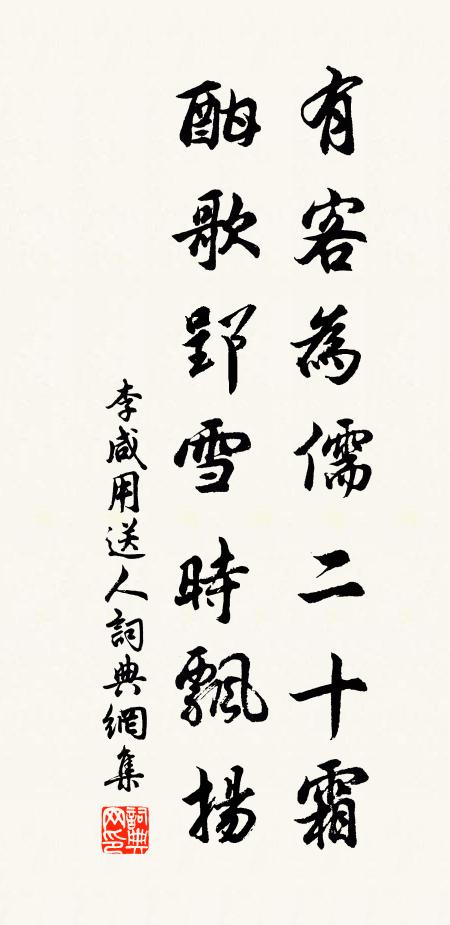 有客為儒二十霜
酣歌郢雪時飄揚
李咸用送人詞典網集
詞典网印